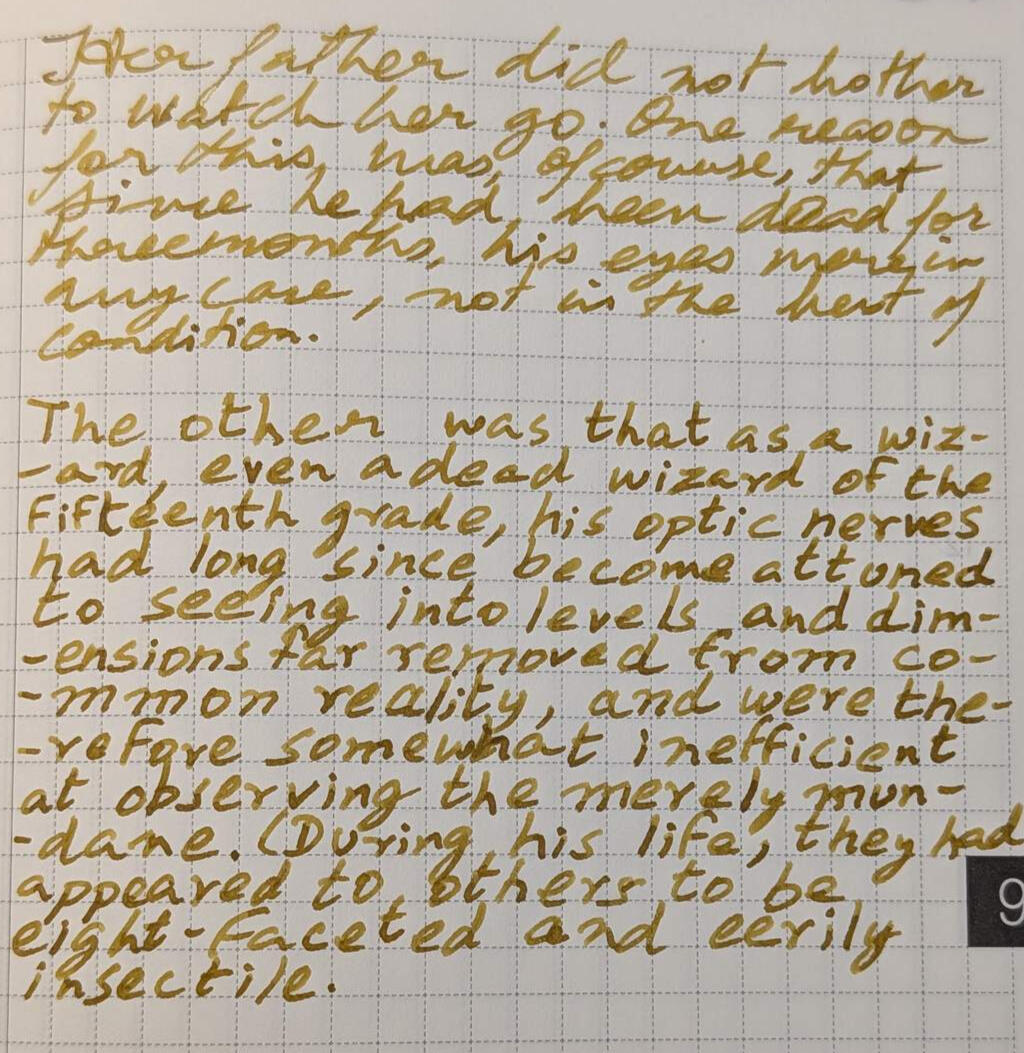 Her father did not bother
to watch her go. One reason
for this, was, ofcourse, that
since he had, been dead for
threemonths, his eyes were, in
any case, not in the best of
condition.
The other was that as a wiz-
-ard, even a dead wizard of the
fifteenth grade, his optic nerves
had long since become attuned
to seeing into levels and dim-
-ensions far removed from co-
-mmon reality, and were the-
-refore somewhat inefficient
at observing the merely mun-
-dane. (During his life, they had
appeared to others to be
eight-faceted and eerily
insectile.
9